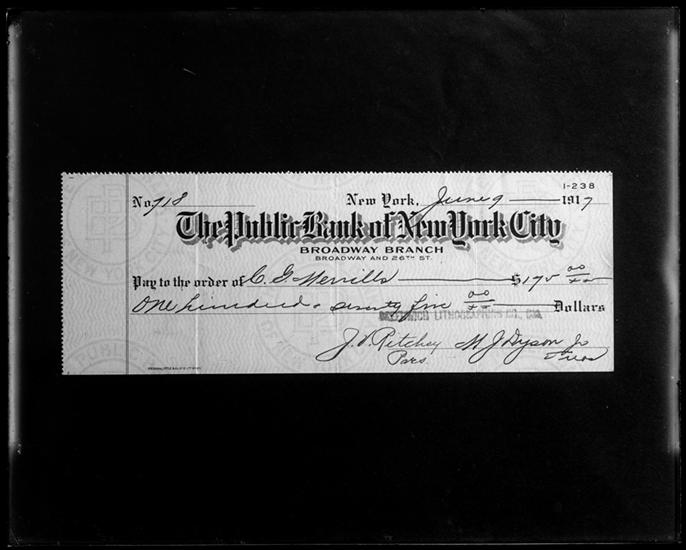 1-238
No 718 New York, June 9 1917
The Public Bank of New York City
BROADWAY BRANCH
BROADWAY AND 26TH ST.
Pay to the order of C. G. Merrills $175 00/xx
One hundred & seventy five 00/xx Dollars
LITHOGRAPHING CO., INC.
J. V. Ritchey M J Dyson Jr
Pres. Treas